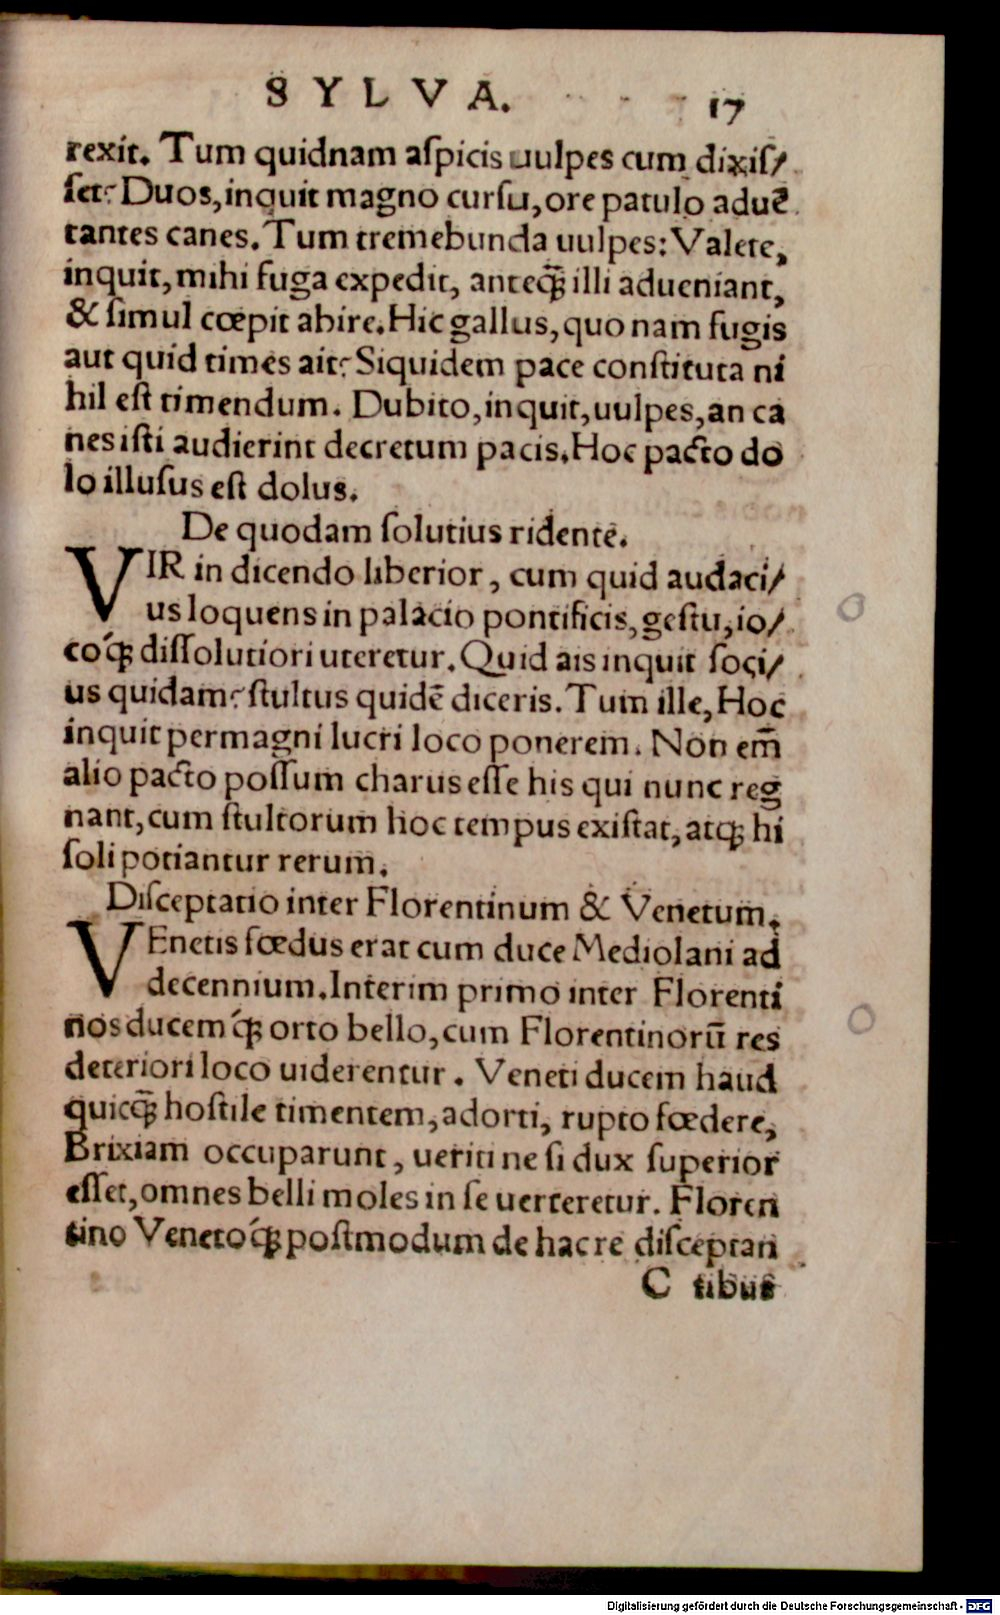 SYLVA. 17
rexit. Tum quidnam aſpicis uulpes cum dixiſ/
ſet? Duos, inquit magno curſu, ore patulo aduē
tantes canes. Tum tremebunda uulpes: Valete,
inquit, mihi fuga expedit, anteq̃ illi adueniant,
& ſimul cœpit abire. Hic gallus, quo nam fugis
aut quid times ait? Siquidem pace conſtituta ni
hil eſt timendum. Dubito, inquit, uulpes, an ca
nes iſti audierint decretum pacis. Hoc pacto do
lo illuſus eſt dolus.
De quodam ſolutius ridente.
VIR in dicendo liberior, cum quid audaci/
us loquens in palacio pontificis, geſtu, io/
coq́; diſſolutiori uteretur. Quid ais inquit ſoci/
us quidam? ſtultus quidē diceris. Tum ille, Hoc
inquit permagni lucri loco ponerem. Non em̃
alio pacto poſſum charus eſſe his qui nunc reg
nant, cum ſtultorum hoc tempus exiſtat, atq; hi
ſoli potiantur rerum.
Diſceptatio inter Florentinum & Venetum.
VEnetis fœdus erat cum duce Mediolani ad
decennium. Interim primo inter Florenti
nos ducemq́; orto bello, cum Florentinorū res
deteriori loco uiderentur. Veneti ducem haud
quicq̃ hoſtile timentem, adorti, rupto fœdere,
Brixiam occuparunt, ueriti ne ſi dux ſuperior
eſſet, omnes belli moles in ſe uerteretur. Floren
tino Venetoq́; poſtmodum de hac re diſceptan
C tibus
Digitalisierung gefördert durch die Deutsche Forschungsgemeinschaft - DFG